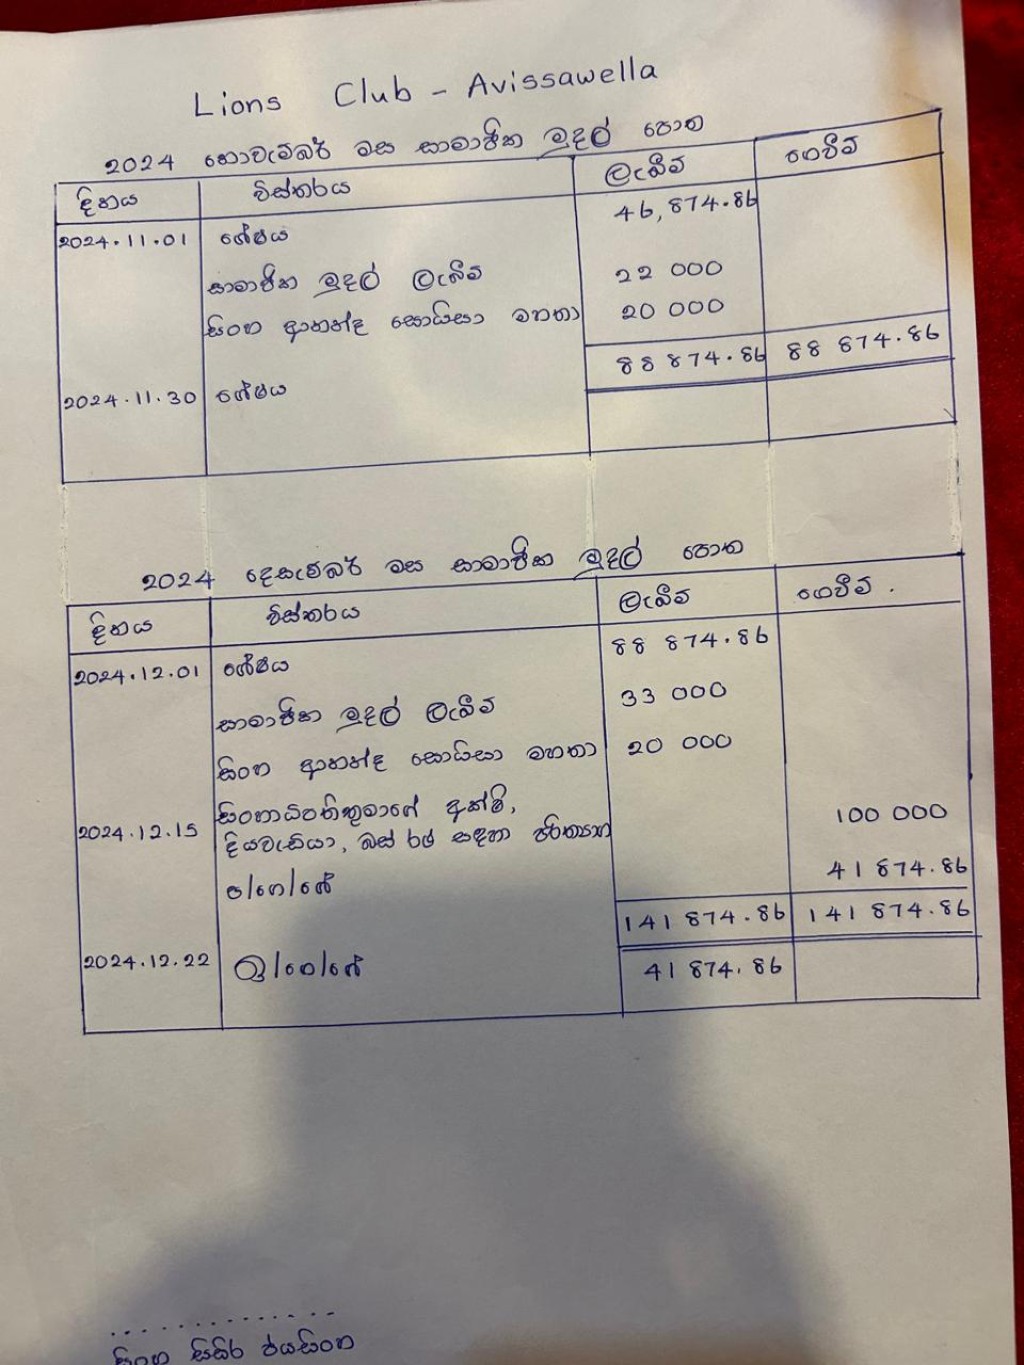 Lions Club - Avissawella
2024 නොවැම්බර් මස සාමාජික මුදල් පොත
දිනය විස්තරය ලැබීම් ගෙවීම්
2024.11.01 ශේෂය 46,874.86
සාමාජික මුදල් ලැබීම් 22 000
සිංහ ආනන්ද සොයිසා මහතා 20 000
88 874.86 88 874.86
2024.11.30 ශේෂය
2024 දෙසැම්බර් මස සාමාජික මුදල් පොත
දිනය විස්තරය ලැබීම් ගෙවීම් .
2024.12.01 ශේෂය 88 874.86
සාමාජික මුදල් ලැබීම් 33 000
සිංහ ආනන්ද සොයිසා මහතා 20 000
සිංහාධිපතිතුමාගේ
2024.12.15 දියවැඩියා, බස් රථ සඳහා පරිත්‍යාග 100 000
ප/ගෙ/ශේ 41 874.86
141 874.86 141 874.86
2024.12.22 ඉ/ගෙ/ශේ 41 874.86
............
සිංහ සිසිර ජයසිංහ